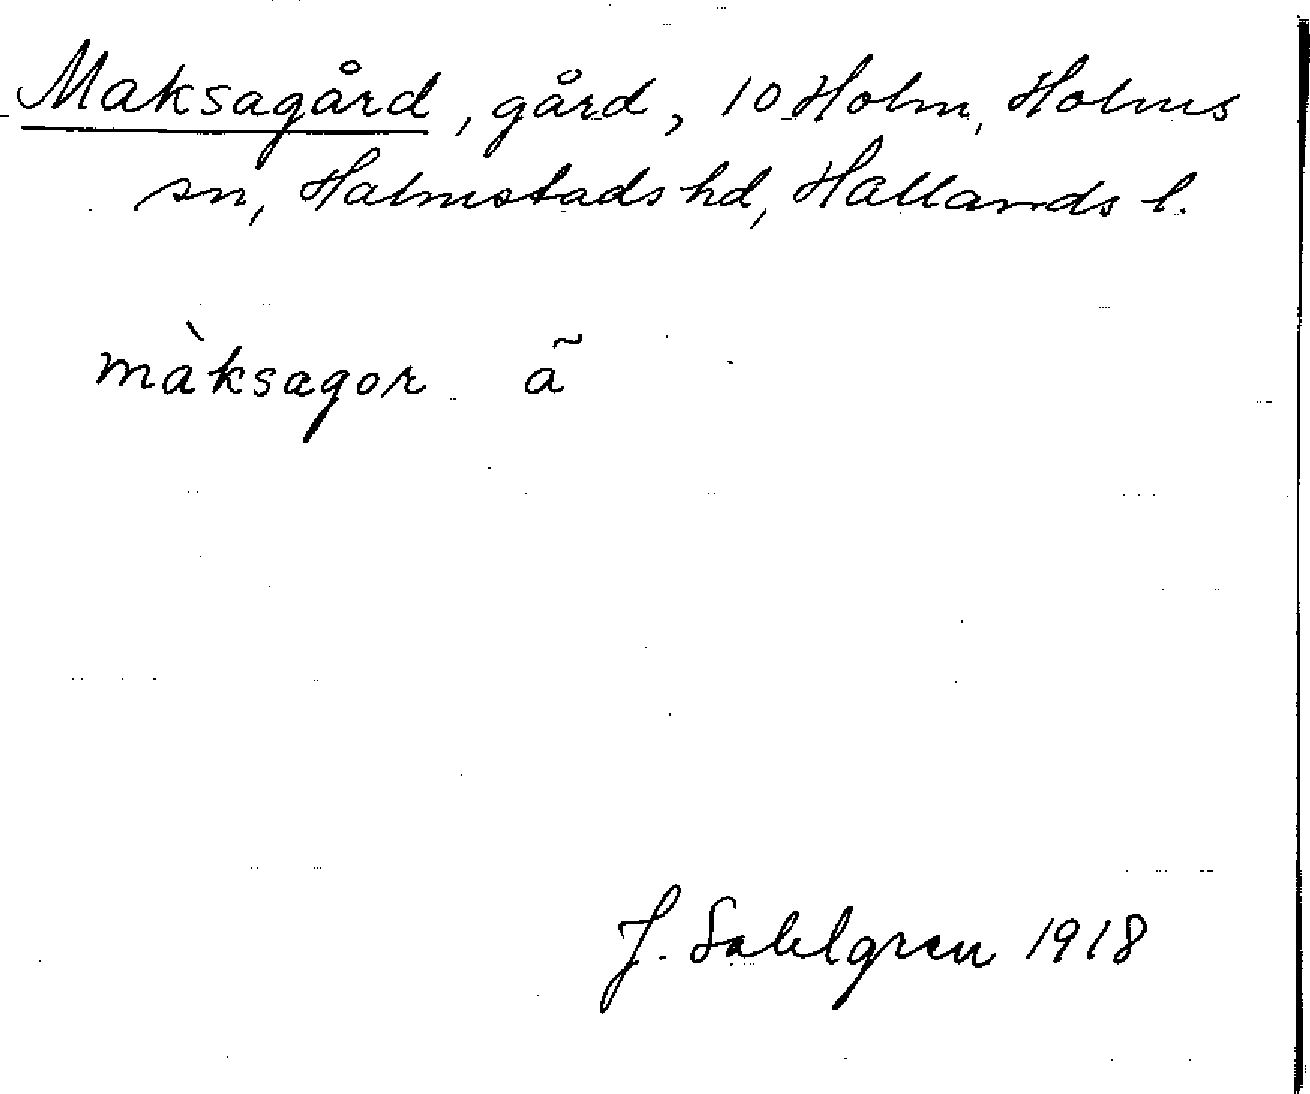 Maksagård, gård, 10 Holm, Holms
sn, Halmstads hd, Hallands l.
màksagor ã
J. Sahlgren 1918